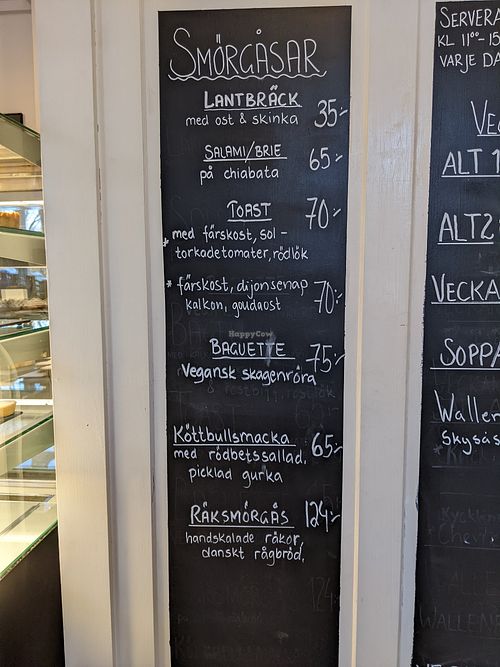 SMÖRGÅSAR
LANTBRÄCK
med ost & skinka 35:-
SALAMI/BRIE 65:-
på chiabata
TOAST 70:-
* med färskost, sol-
torkadetomater, rödlök
* färskost, dijonsenap
kalkon, goudaost 70:-
BAGUETTE 75:-
Vegansk skagenröra
Köttbullsmacka 65:-
med rödbetssallad,
picklad gurka
RÄKSMÖRGÅS 124:-
handskalade räkor,
danskt rågbröd,
HappyCow
SERVERA
KL 11⁰⁰-15
VARJE DA
VE
ALT 1
ALT2
VECKA
SOPPA
Waller
skysås